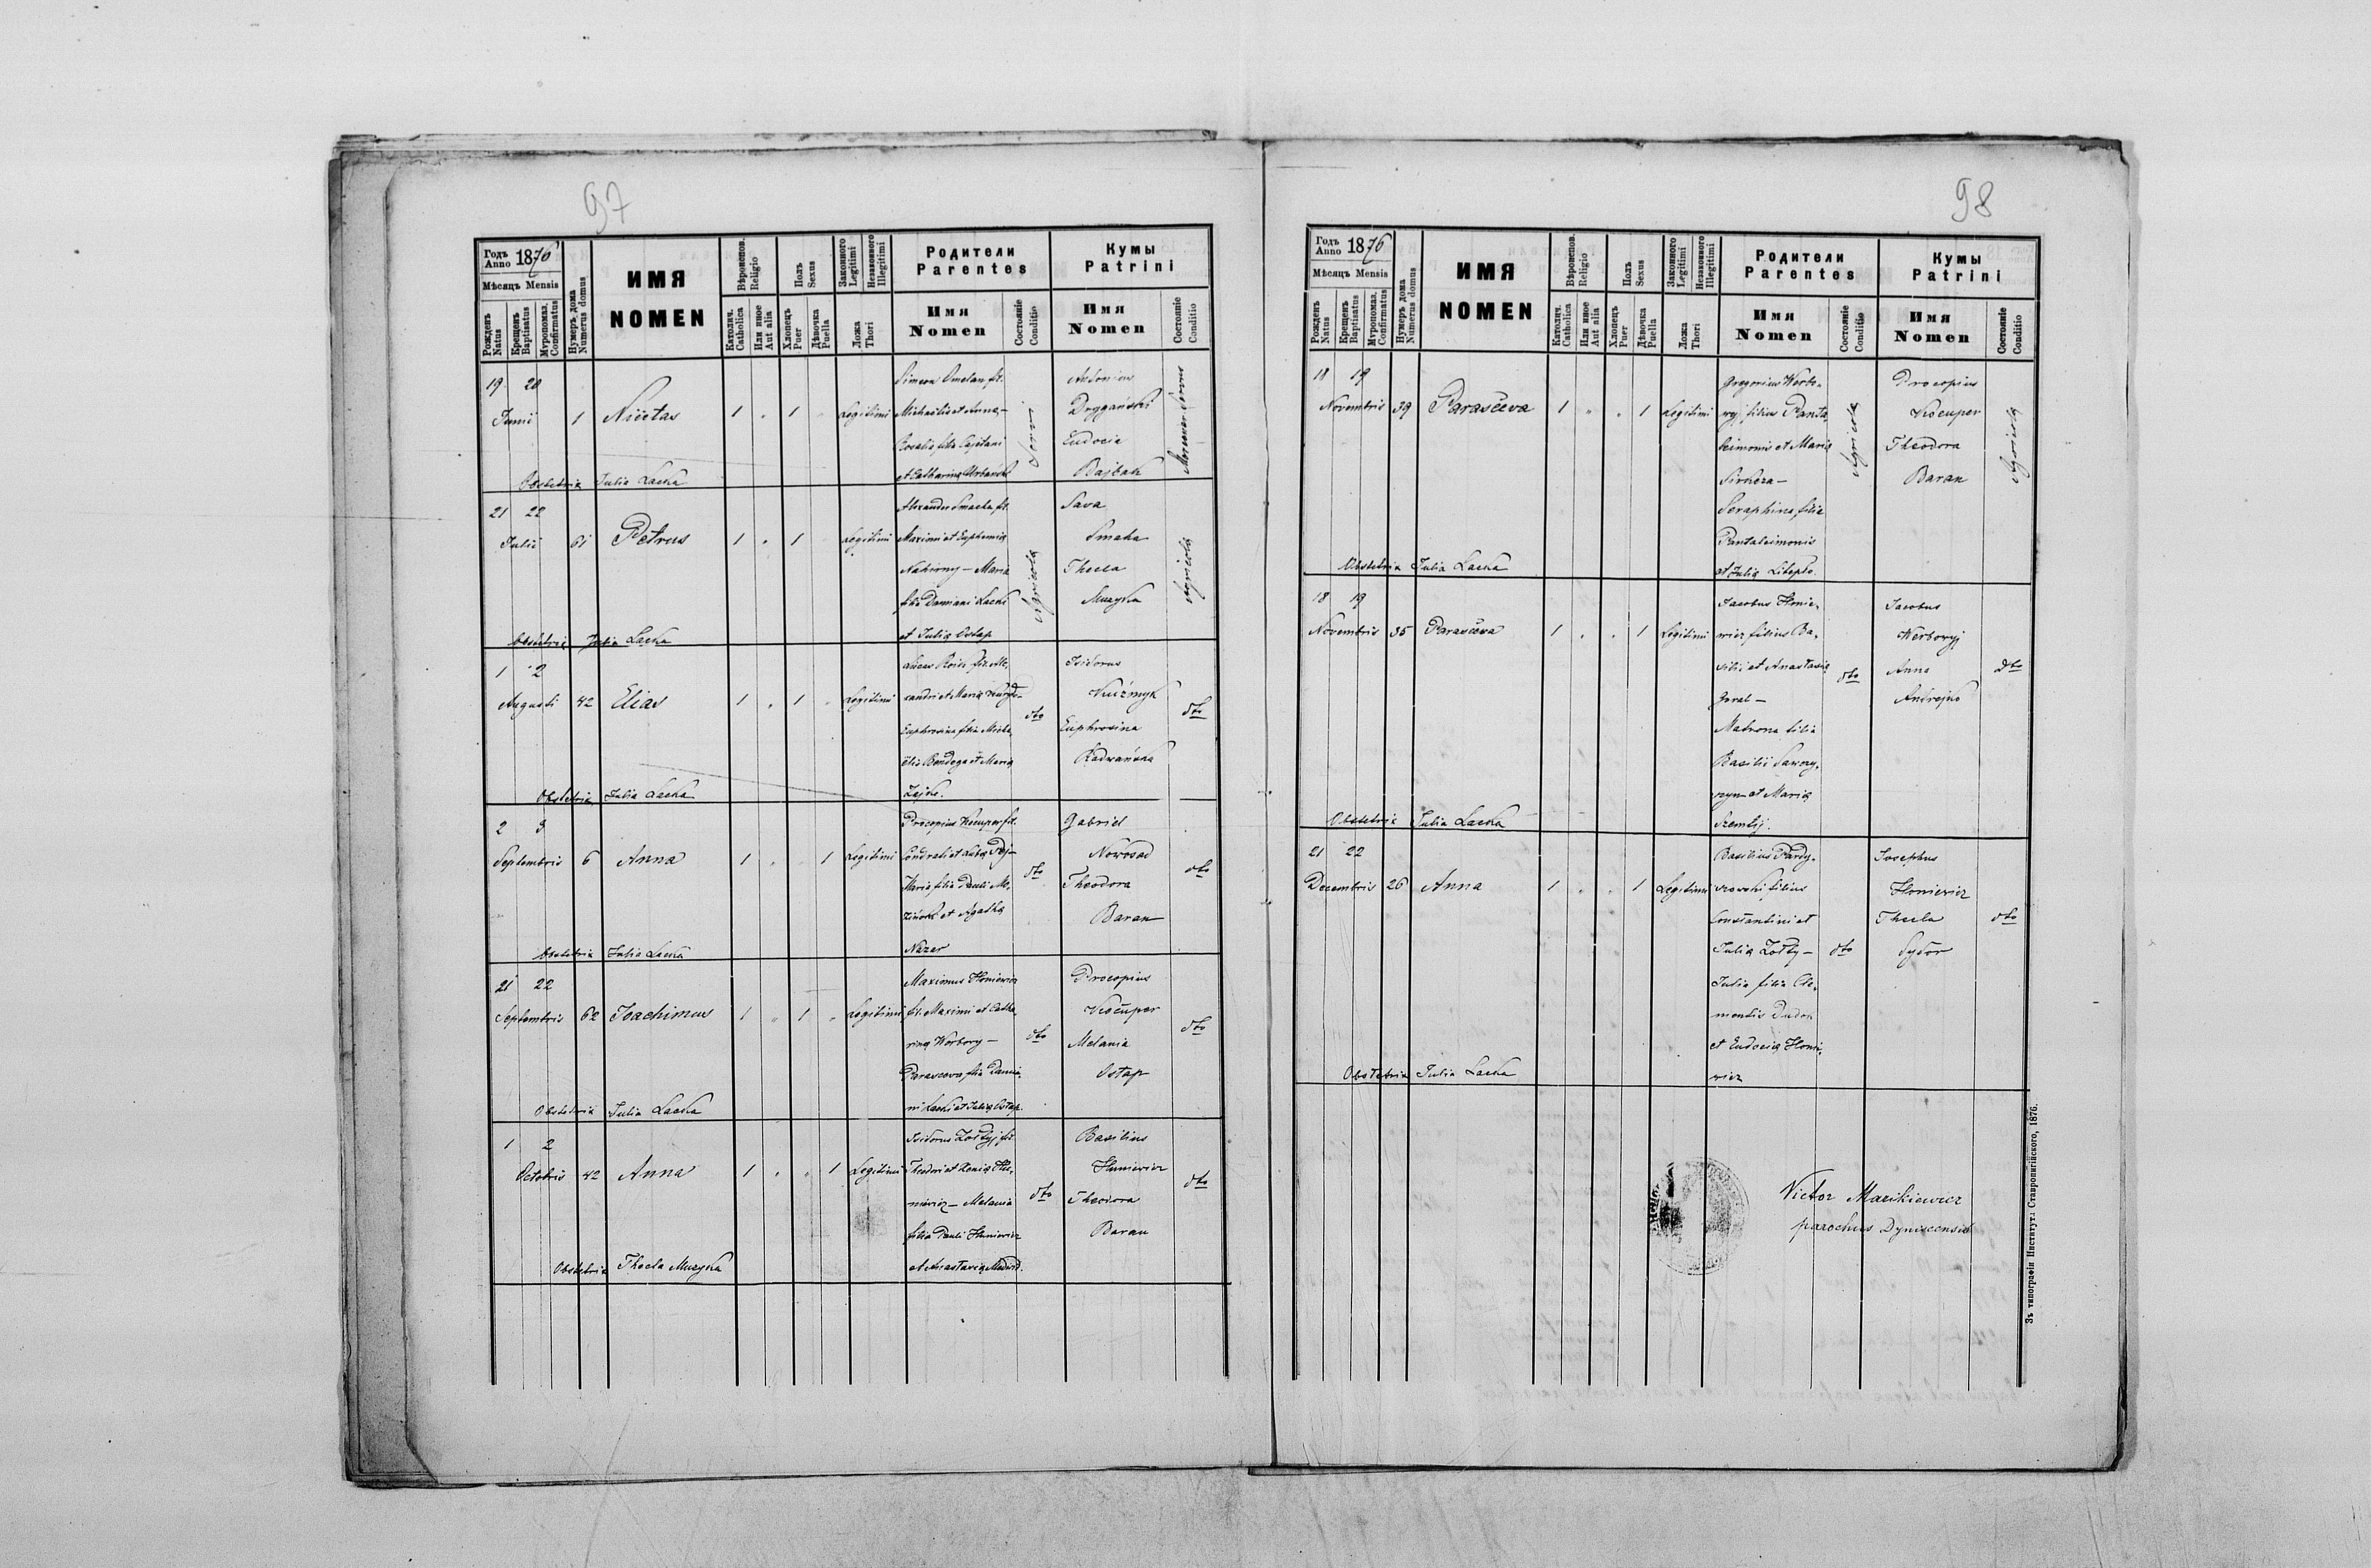 97
Годъ Anno 1876
Мѣсяцъ Mensis
Рожденъ Natus
Крещенъ Baptisatus
Мѵропомаз. Confirmatus
Нумеръ дома Numerus domus
ИМЯ
NOMEN
Вѣроиспов. Religio
Католич. Catholica
Или иное Aut alia
Полъ Sexus
Хлопецъ Puer
Дѣвочка Puella
Законного Legitimi
Незаконного Illegitimi
Ложа Thori
Родители
Parentes
Имя
Nomen
Состояніе Conditio
Кумы
Patrini
Имя
Nomen
Состояніе Conditio
19 20
Junii 1 Nicetas 1 " 1 " Legitimi
Simeon Omelan fil.
Michaëlis et Anna
Rosalia filia Cajetani
et Catharina
Antonius
Drygański
Eudocia
Bajbak
Obstetrix Julia Lacka
21 22
Julii 61 Petrus 1 " 1 Legitimi
Alexander Smacha fil.
Maximi et Euphemia
Nahirny — Maria
filia Damiani Lacki
et Julia Ostap
Agricola
Sava
Smaha
Thecla
Muzyka
Agricola
Obstetrix Julia Lacka
1 2
Augusti 42 Elias 1 " 1 " Legitimi
Euphrosina filia Micha-
ëlis Bondega et Maria
Zajke.
dto
Isidorus
Kuźmyk
Euphrosina
Radwańska
dto
Obstetrix Julia Lacka
2 3
Septembris 6 Anna 1 " 1 Legitimi
Procopius Kiscuper fil.
Maria filia Pauli
et Agatha
Nazar
dto
Gabriel
Nowosad
Theodora
Baran
dto
Obstetrix Julia Lacka
21 22
Septembris 62 Joachimus 1 " 1 " Legitimi
Maximus Honiewicz
fil. Maximi et Catha-
rina Werbowy —
Parasceva filia Damia-
ni Lacki et Julia Ostap.
dto
Procopius
Kiscuper
Melania
Ostap
dto
Obstetrix Julia Lacka
1 2
Octobris 42 Anna 1 " " 1 Legitimi
Isidorus Zołtyj fil.
Theodori et Xenia
niewicz — Melania
filia Pauli Huniewicz
et Anastasia
dto
Basilius
Huniewicz
Theodora
Baran
dto
Obstetrix Thecla Muzyka
98
Годъ Anno 1876
Мѣсяцъ Mensis
Рожденъ Natus
Крещенъ Baptisatus
Мѵропомаз. Confirmatus
Нумеръ дома Numerus domus
ИМЯ
NOMEN
Вѣроиспов. Religio
Католич. Catholica
Или иное Aut alia
Полъ Sexus
Хлопецъ Puer
Дѣвочка Puella
Законного Legitimi
Незаконного Illegitimi
Ложа Thori
Родители
Parentes
Имя
Nomen
Состояніе Conditio
Кумы
Patrini
Имя
Nomen
Состояніе Conditio
18 19
Novembris 39 Parasčeva 1 " " 1 Legitimi
Gregorius Werbo-
wyj filius Panta-
leimonis et Maria
Seraphina filia
Pantaleimonis
et Julia Litepło.
Agricola
Procopius
Kiscuper
Theodora
Baran
Agricola
Obstetrix Julia Lacka
18 19
Novembris 35 Parasčeva 1 " " 1 Legitimi
Jacobus Honie-
wicz filius Ba-
silii et Anastasia
Goral —
Matrona filia
Basilii Sawczy-
szyn et Maria
Szemlij.
dto
Jacobus
Werbowyj
Anna
Andrejko
dto
Obstetrix Julia Lacka
21 22
Decembris 26 Anna 1 " " 1 Legitimi
Basilius Pardy-
szowski filius
Constantini et
Julia Zołty —
Julia filia Cle-
mentis Dudon
et Eudocia Honie-
wicz
dto
Josephus
Honiewicz
Thecla
Sydor
dto
Obstetrix Julia Lacka
Victor Mazikiewicz
parochus Dyniscensis
Зъ типографіи Института Ставропигійского, 1876.